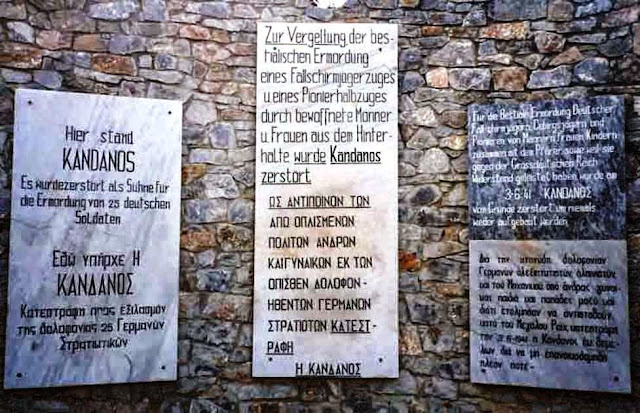 Hier stand
KANDANOS
Es wurdezerstört als Sühne für
die Ermordung von 25 deutschen
Soldaten
Εδώ υπήρχε Η
ΚΑΝΔΑΝΟΣ
Κατεστράφη προς εξιλασμόν
της δολοφονίας 25 Γερμανών
Στρατιωτικών
Zur Vergeltung der bes-
tialischen Ermordung
eines Fallschirmjägerzuges
u. eines Pionierhalbzuges
durch bewaffnete Männer
u. Frauen aus dem Hinter-
halte wurde Kandanos
zerstört.
ΩΣ ΑΝΤΙΠΟΙΝΟΝ ΤΩΝ
ΑΠΟ ΟΠΛΙΣΜΕΝΩΝ
ΠΟΛΙΤΩΝ ΑΝΔΡΩΝ
ΚΑΙΓΥΝΑΙΚΩΝ ΕΚ ΤΩΝ
ΟΠΙΣΘΕΝ ΔΟΛΟΦΟΝ-
ΗΘΕΝΤΩΝ ΓΕΡΜΑΝΩΝ
ΣΤΡΑΤΙΩΤΩΝ ΚΑΤΕΣΤ-
ΡΑΦΗ
Η ΚΑΝΔΑΝΟΣ
Für die Bestiale Ermordung Deutscher
Fallschirmjäger, Gebirgsjäger und
Pionieren von Männern, Frauen, Kindern
zusammen mit den Pfarrer sowie weil sie
gegen der Grossdeutschen Reich
Widerstand geleistet haben wurde am
3-6-41 KANDANOS
von Grunde zerstört um niemals
wieder aufgebaut werden
Δια την κτηνώδη δολοφονίαν
Γερμανών αλεξιπτωτιστών αλπινιστών
και του Μηχανικού από άνδρας γυναί-
κας παιδιά και παπάδες μαζύ και
διότι ετόλμησαν να αντισταθούν
κατά του Μεγάλου Ράιχ κατεστράφη
την 3-6-1941 η Κάνδανος εκ θεμε-
λίων δια να μη επανοικοδομηθή
πλέον ποτέ-